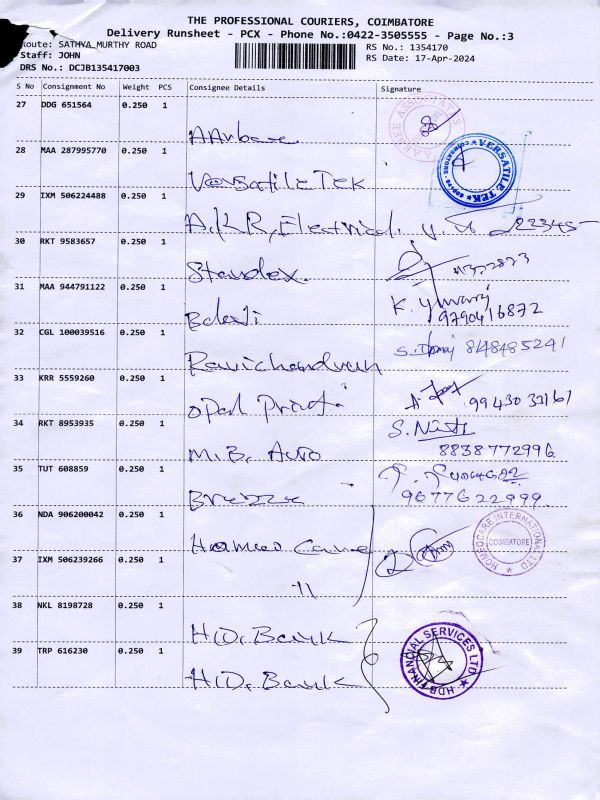 THE PROFESSIONAL COURIERS, COIMBATORE
Delivery Runsheet - PCX - Phone No.:0422-3505555 - Page No.:3
Route: SATHYA MURTHY ROAD
Staff: JOHN
DRS No.: DCJB135417003
RS No.: 1354170
RS Date: 17-Apr-2024
S No Consignment No Weight PCS Consignee Details Signature
27 DDG 651564 0.250 1
28 MAA 287995770 0.250 1 Versatile Tek VERSATILE TEK
29 IXM 506224488 0.250 1 A.K.R, Electrical. 22345
30 RKT 9583657 0.250 1 Standex.
31 MAA 944791122 0.250 1 Balaji K. 9790416872
32 CGL 100039516 0.250 1 Ravichandran S. 848485241
33 KRR 5559260 0.250 1 opal Print. 99430 33161
34 RKT 8953935 0.250 1 M.B. Auto S. 8838772996
35 TUT 608859 0.250 1 Breeze 9677622999
36 NDA 906200042 0.250 1 Homeo Care HOMEOCARE INTERNATIONAL LTD COIMBATORE
37 IXM 506239266 0.250 1 -11
38 NKL 8198728 0.250 1 H.D. Bank
39 TRP 616230 0.250 1 H.D. Bank HDB FINANCIAL SERVICES LTD